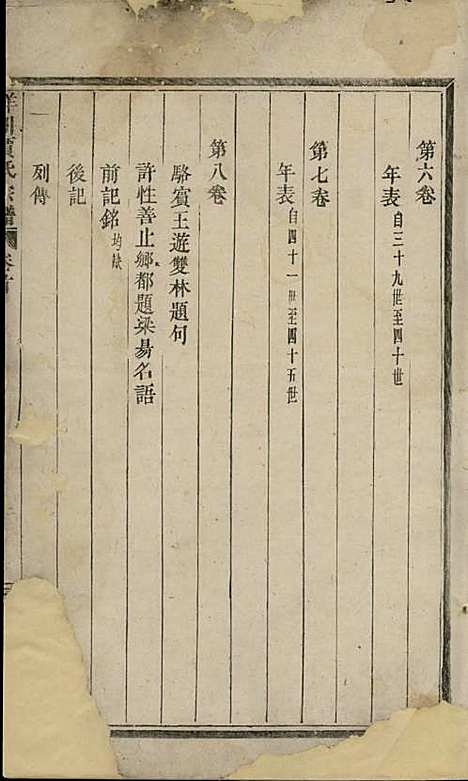 第六卷
年表自三十九世至四十世
第七卷
年表自四十一世至四十五世
第八卷
駱賓王遊雙林題句
許性善止鄉都題梁昜名語
前記銘均缺
後記
列傳
氏宗譜